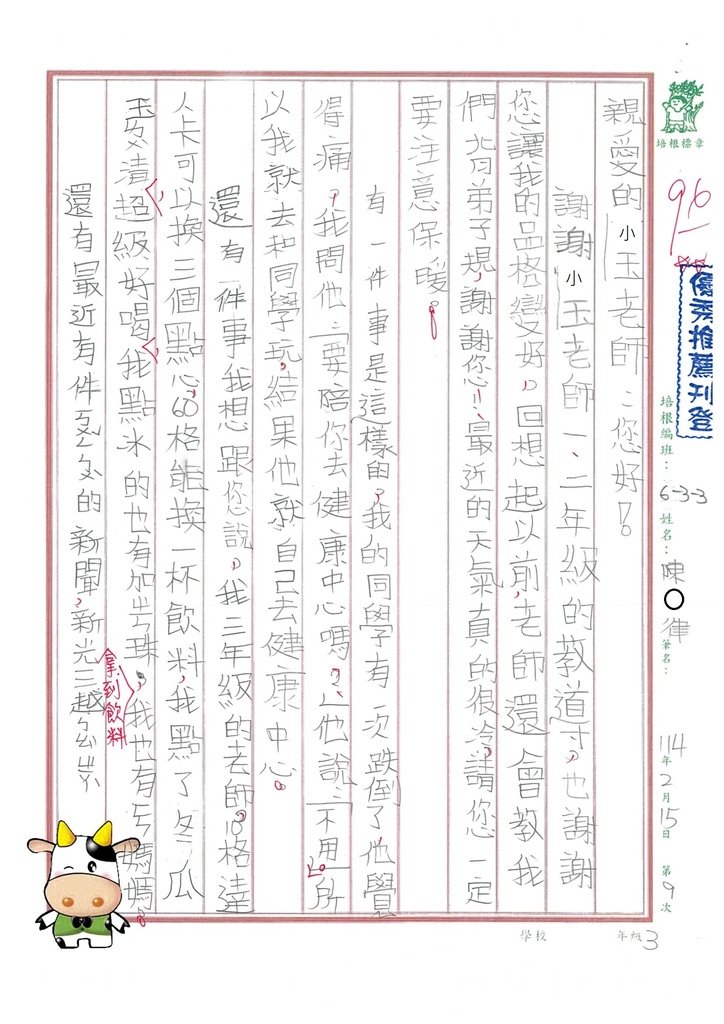 親愛的小玉老師：您好！
謝謝小玉老師一、二年級的教道寸，也謝謝
您讓我的品格變好，回想起以前，老師還會教我
們背弟子規，謝謝您！最近的天氣真的很冷，請您一定
要注意保暖。
有一件事是這樣的，我的同學有一次跌倒了，他覺
得痛，我問他：「要陪你去健康中心嗎？」他說：「不用」所
以我就去和同學玩，結果他就自己去健康中心。
還有一件事我想跟您說，我三年級的老師，10格達
人卡可以換三個點心，60格能換一杯飲料，我點了冬瓜
玉ㄌㄨ清超級好喝，我點冰的也有加ㄓㄣ珠，我也有ㄎ媽媽。
拿到飲料
還有最近有件的新聞，新光三越
培根標章
96
優秀推薦刊登
培根編班：6-3-3
姓名：陳〇律
筆名：
114年2月15日 第9次
學校 年級3